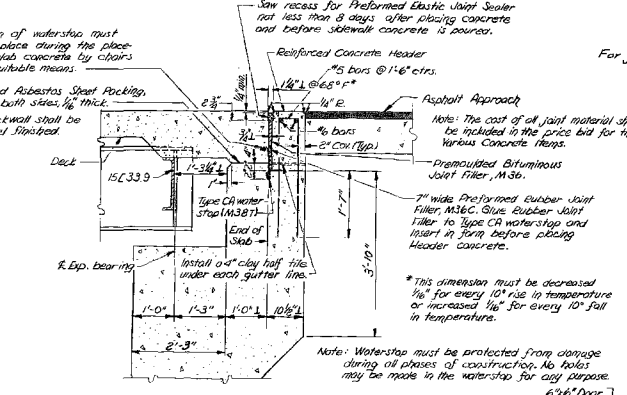 Saw recess for Preformed Elastic Joint Sealer
not less than 8 days after placing concrete
and before sidewalk concrete is poured.
of waterstop must
place during the place-
slab concrete by chairs
suitable means.
Asbestos Sheet Packing,
both sides, 1/16" thick.
backwall shall be
finished.
Reinforced Concrete Header
#5 bars @ 1'-6" ctrs.
1 1/4" ⊥ @ 68° F*
1/4" R.
2 3/4"
For
Asphalt Approach
Note: The cost of all joint material sh
be included in the price bid for t
Various Concrete Items.
#6 bars
2" Cov. (Typ.)
Premoulded Bituminous
Joint Filler, M36.
Deck
15 [ 33.9
1'-3 1/4" ⊥
1"
Type CA water
stop (M38T)
End of
Slab
1'-7"
3'-10"
7" wide Preformed Rubber Joint
Filler, M36C. Glue Rubber Joint
Filler to Type CA waterstop and
insert in form before placing
Header concrete.
℄ Exp. bearing
Install a 4" clay half tile
under each gutter line.
1'-0"
1'-3"
1'-0" ⊥
10 1/2" ⊥
2'-3"
* This dimension must be decreased
1/16" for every 10° rise in temperature
or increased 1/16" for every 10° fall
in temperature.
Note: Waterstop must be protected from damage
during all phases of construction. No holes
may be made in the waterstop for any purpose.
6"x6" Door